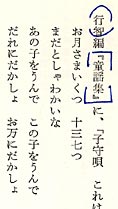 行智編『童謡集』に、「子守唄　これは
お月さまいくつ　十三七つ
まだとしゃわかいな
あの子をうんで　この子をうんで
だれにだかしょ　お万にだかしょ